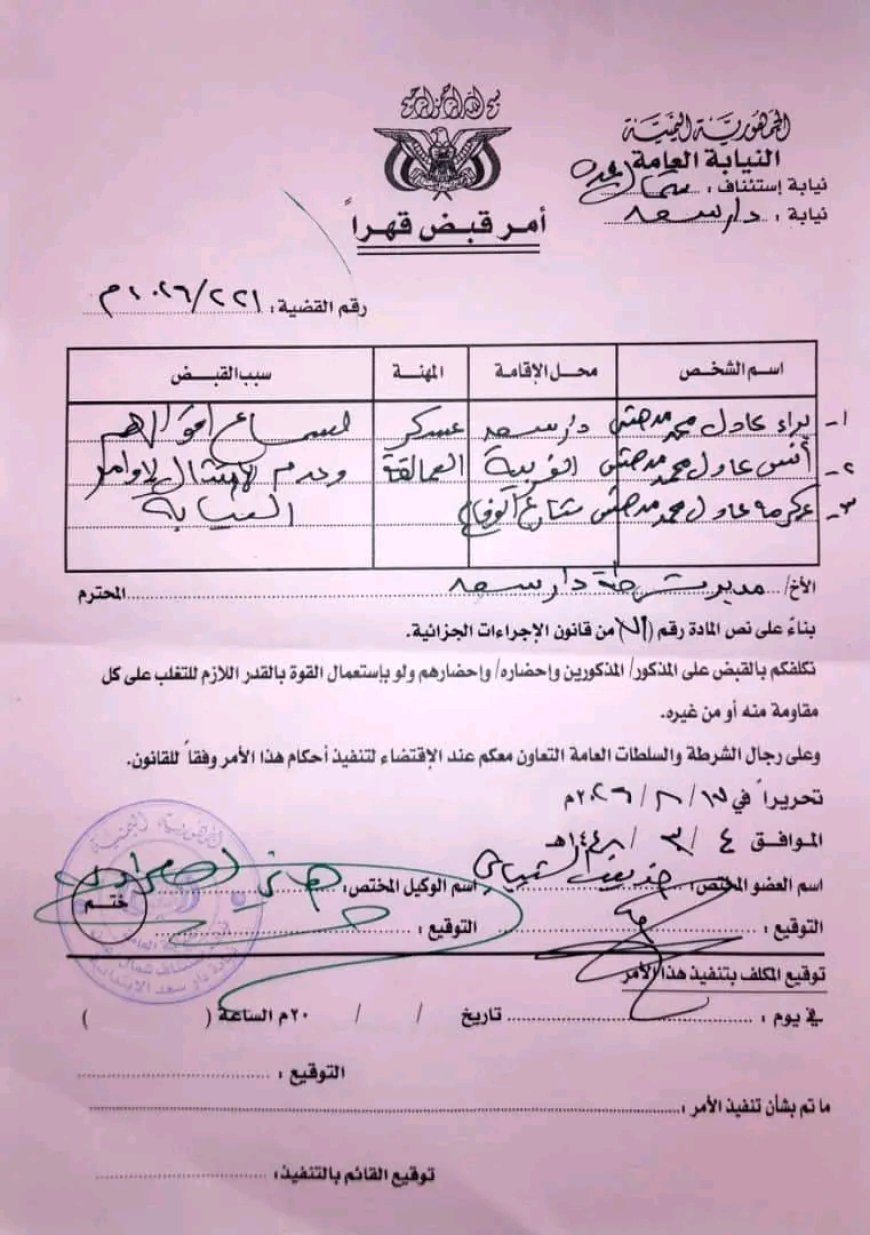 بسم الله الرحمن الرحيم
الجمهورية اليمنية
النيابة العامة
نيابة إستئناف : شمال عدن
نيابة : دار سعد
أمر قبض قهراً
رقم القضية : ٢٢١/٢٠٢٦م
اسم الشخص محل الإقامة المهنة سبب القبض
١- براء عادل محمد دار سعد عسكري لسماع اقوالهم
٢- أنس عادل محمد الغربية العمالقة وعدم الامتثال لاوامر
٣- عكرمه عادل محمد شارع النيابة
الأخ/ مدير شرطة دار سعد المحترم
بناءً على نص المادة رقم ( ) من قانون الإجراءات الجزائية.
نكلفكم بالقبض على المذكور/ المذكورين وإحضاره/ وإحضارهم ولو بإستعمال القوة بالقدر اللازم للتغلب على كل
مقاومة منه أو من غيره.
وعلى رجال الشرطة والسلطات العامة التعاون معكم عند الإقتضاء لتنفيذ أحكام هذا الأمر وفقاً للقانون.
تحريراً في / / ٢٠٢٦م
الموافق ٤ / ٣ / ١٤٤٨هـ
اسم العضو المختص : اسم الوكيل المختص : هاني
ختم
التوقيع : التوقيع :
توقيع المكلف بتنفيذ هذا الأمر
في يوم : تاريخ / / ٢٠م الساعة ( )
التوقيع :
ما تم بشأن تنفيذ الأمر :
توقيع القائم بالتنفيذ :